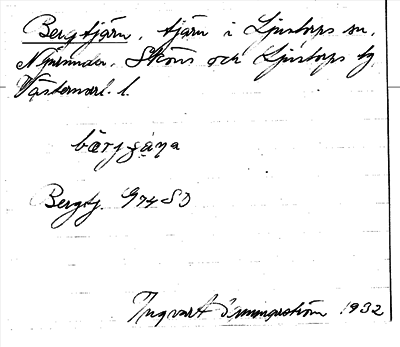 Bergtjärn, tjärn i Ljustorps sn,
Njurunda, Sköns och Ljustorps tg
Västernorl. l.
bærjɕä́ɳa
Bergtj. G 74 SD
Ingvart Hammarström 1932